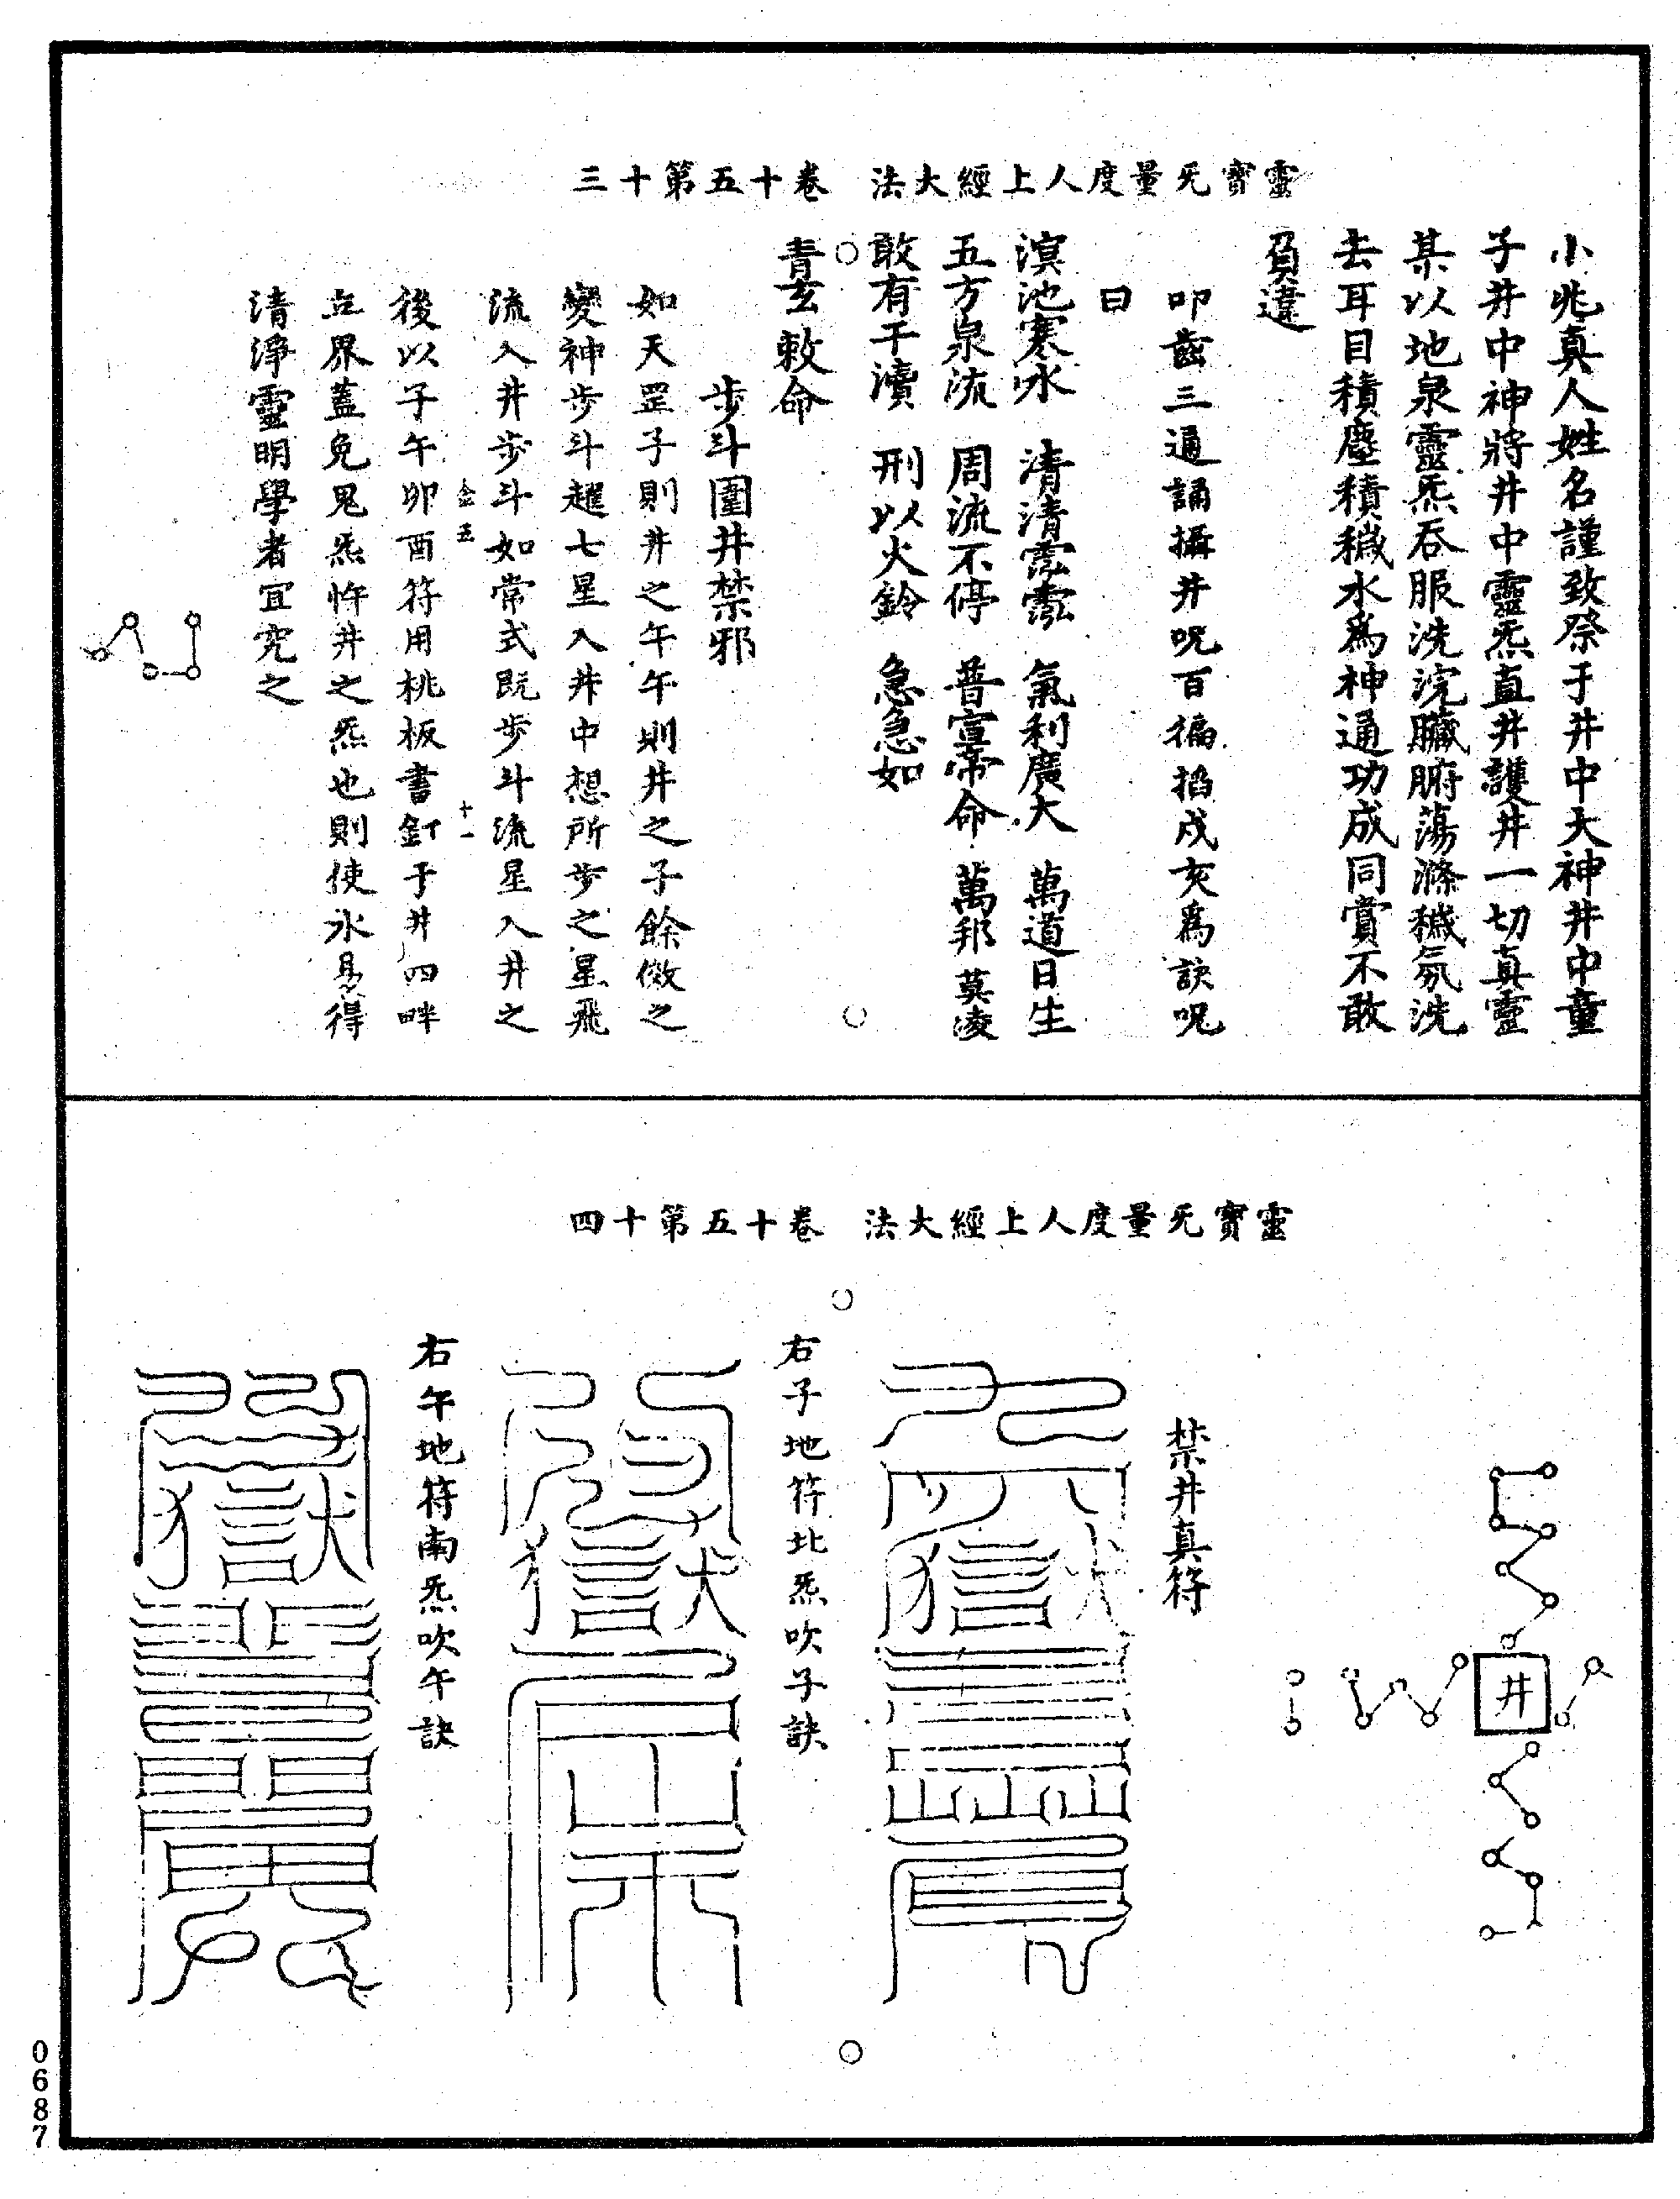 靈寶无量度人上經大法　卷十五第十三
小兆真人姓名謹致祭于井中大神井中童
子井中神將井中靈炁直井護井一切真靈
某以地泉靈炁吞服洗浣臟腑蕩滌穢氛洗
去耳目積塵積穢水爲神通功成同賞不敢
負違
叩齒三通誦攝井呪百徧掐戌亥爲訣呪
曰
溟池寒水　清清霐霐　氣利廣大　萬道日生
五方泉流　周流不停　普宣帝命　萬邦莫凌
敢有干瀆　刑以火鈴　急急如
青玄敕命
步斗圍井禁邪
如天罡子則井之午午則井之子餘倣之
變神步斗躔七星入井中想所步之星飛
流入井步斗如常式既步斗流星入井之
金五　十一
後以子午卯酉符用桃板書釘于井四畔
立界蓋免鬼炁忤井之炁也則使水易得
清淨靈明學者宜究之
靈寶无量度人上經大法　卷十五第十四
井
禁井真符
右子地符北炁吹子訣
右午地符南炁吹午訣
0687